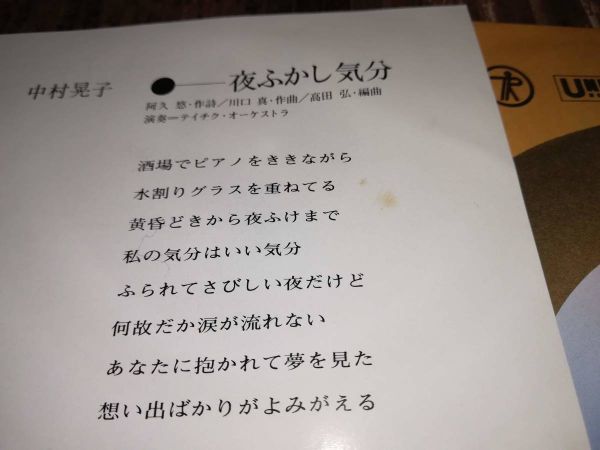 中村晃子 ●——夜ふかし気分
阿久 悠・作詩／川口 真・作曲／高田 弘・編曲
演奏＝テイチク・オーケストラ
酒場でピアノをききながら
水割りグラスを重ねてる
黄昏どきから夜ふけまで
私の気分はいい気分
ふられてさびしい夜だけど
何故だか涙が流れない
あなたに抱かれて夢を見た
想い出ばかりがよみがえる